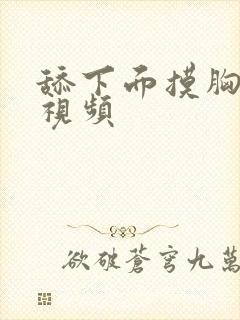 舔下而摸胸
視頻
欲破蒼穹九萬